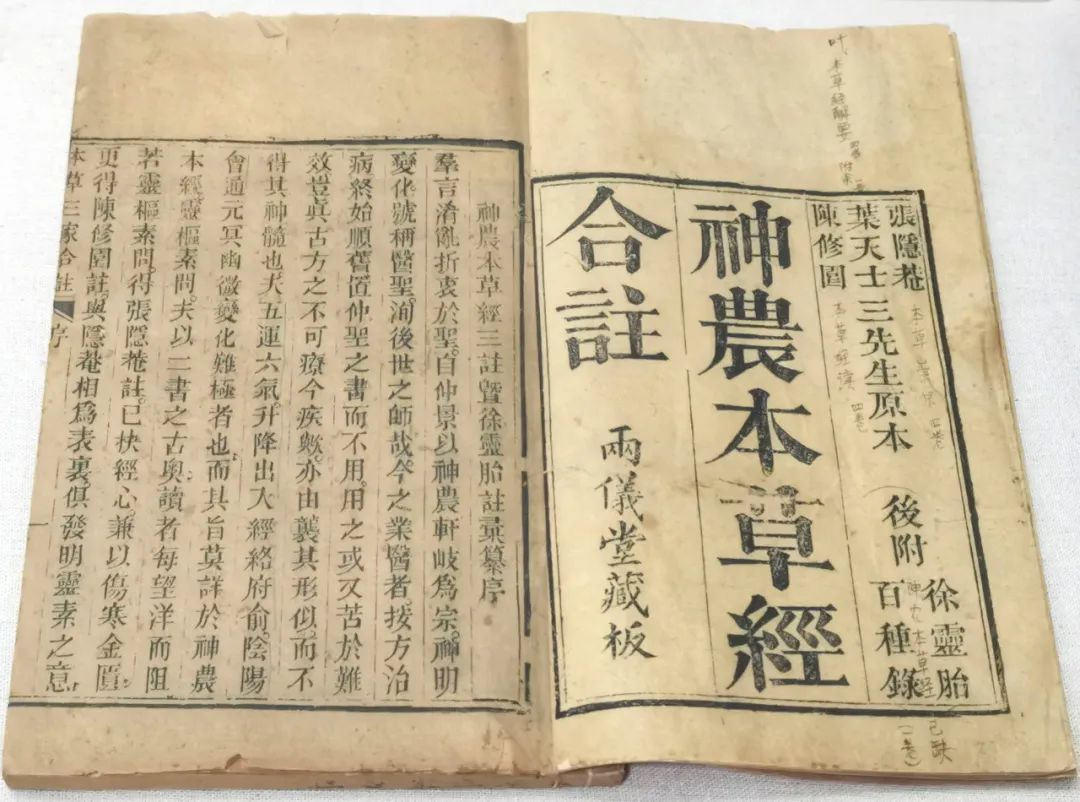 張隱菴
葉天士
陳修園
三先生原本
後附
徐靈胎
百種錄
神農本草經
合註
兩儀堂藏板
叶本草經解要四卷附案一卷
本草崇原四卷
本草經
四卷
已缺
神農本草經三註暨徐靈胎註彙纂序
羣言淆亂折衷於聖。自仲景以神農軒岐爲宗。神明
變化號稱醫聖。洵後世之師哉。今之業醫者。按方治
病終始順舊置仲聖之書而不用。用之或又苦於難
效豈眞古方之不可療今疾歟。亦由襲其形似。而不
得其神髓也。夫五運六氣。升降出入經絡府俞。陰陽
會通元冥幽微變化難極者也。而其旨莫詳於神農
本經靈樞素問。夫以二書之古奧讀者每望洋而阻
若靈樞素問。得張隱菴註。已快經心。兼以傷寒金匱。
更得陳修園註。與隱菴相爲表裏。俱發明靈素之意
本草三家合註
序